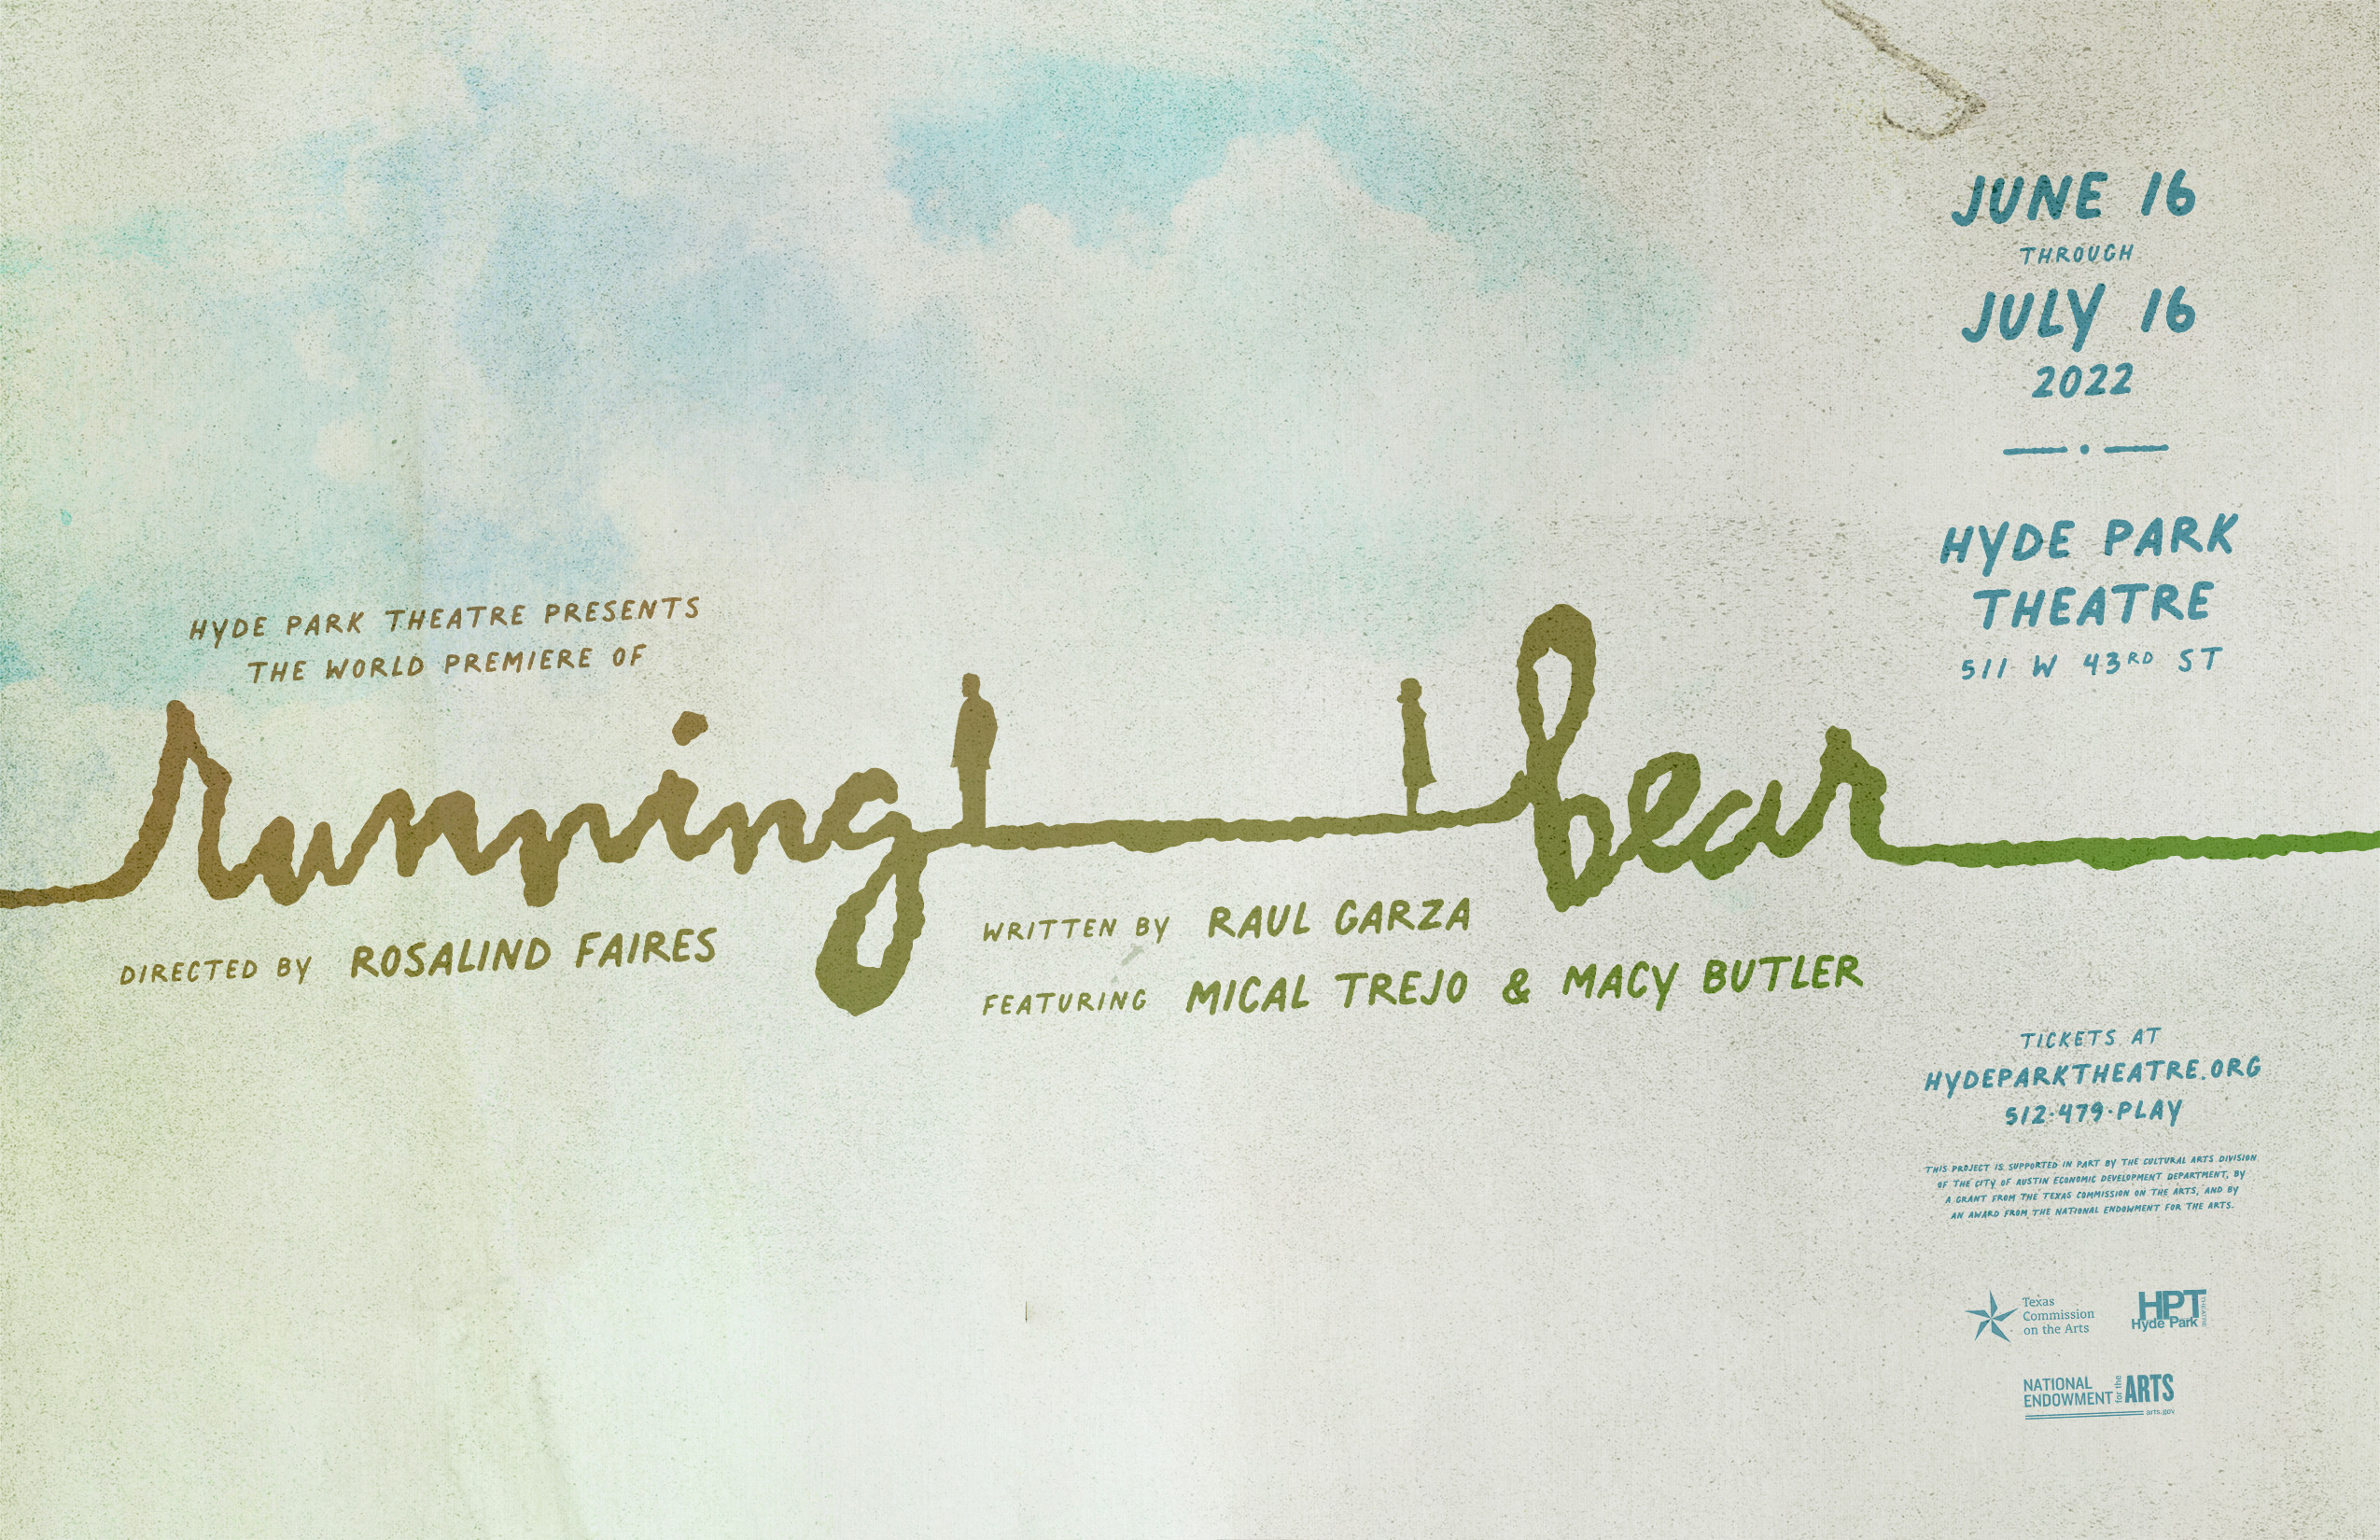 HYDE PARK THEATRE PRESENTS
THE WORLD PREMIERE OF
running bear
DIRECTED BY ROSALIND FAIRES
WRITTEN BY RAUL GARZA
FEATURING MICAL TREJO & MACY BUTLER
JUNE 16
THROUGH
JULY 16
2022
HYDE PARK
THEATRE
511 W 43RD ST
TICKETS AT
HYDEPARKTHEATRE.ORG
512·479·PLAY
THIS PROJECT IS SUPPORTED IN PART BY THE CULTURAL ARTS DIVISION
OF THE CITY OF AUSTIN ECONOMIC DEVELOPMENT DEPARTMENT, BY
A GRANT FROM THE TEXAS COMMISSION ON THE ARTS, AND BY
AN AWARD FROM THE NATIONAL ENDOWMENT FOR THE ARTS.
Texas
Commission
on the Arts
HPT
Hyde Park
THEATRE
NATIONAL
ENDOWMENT for the ARTS
arts.gov